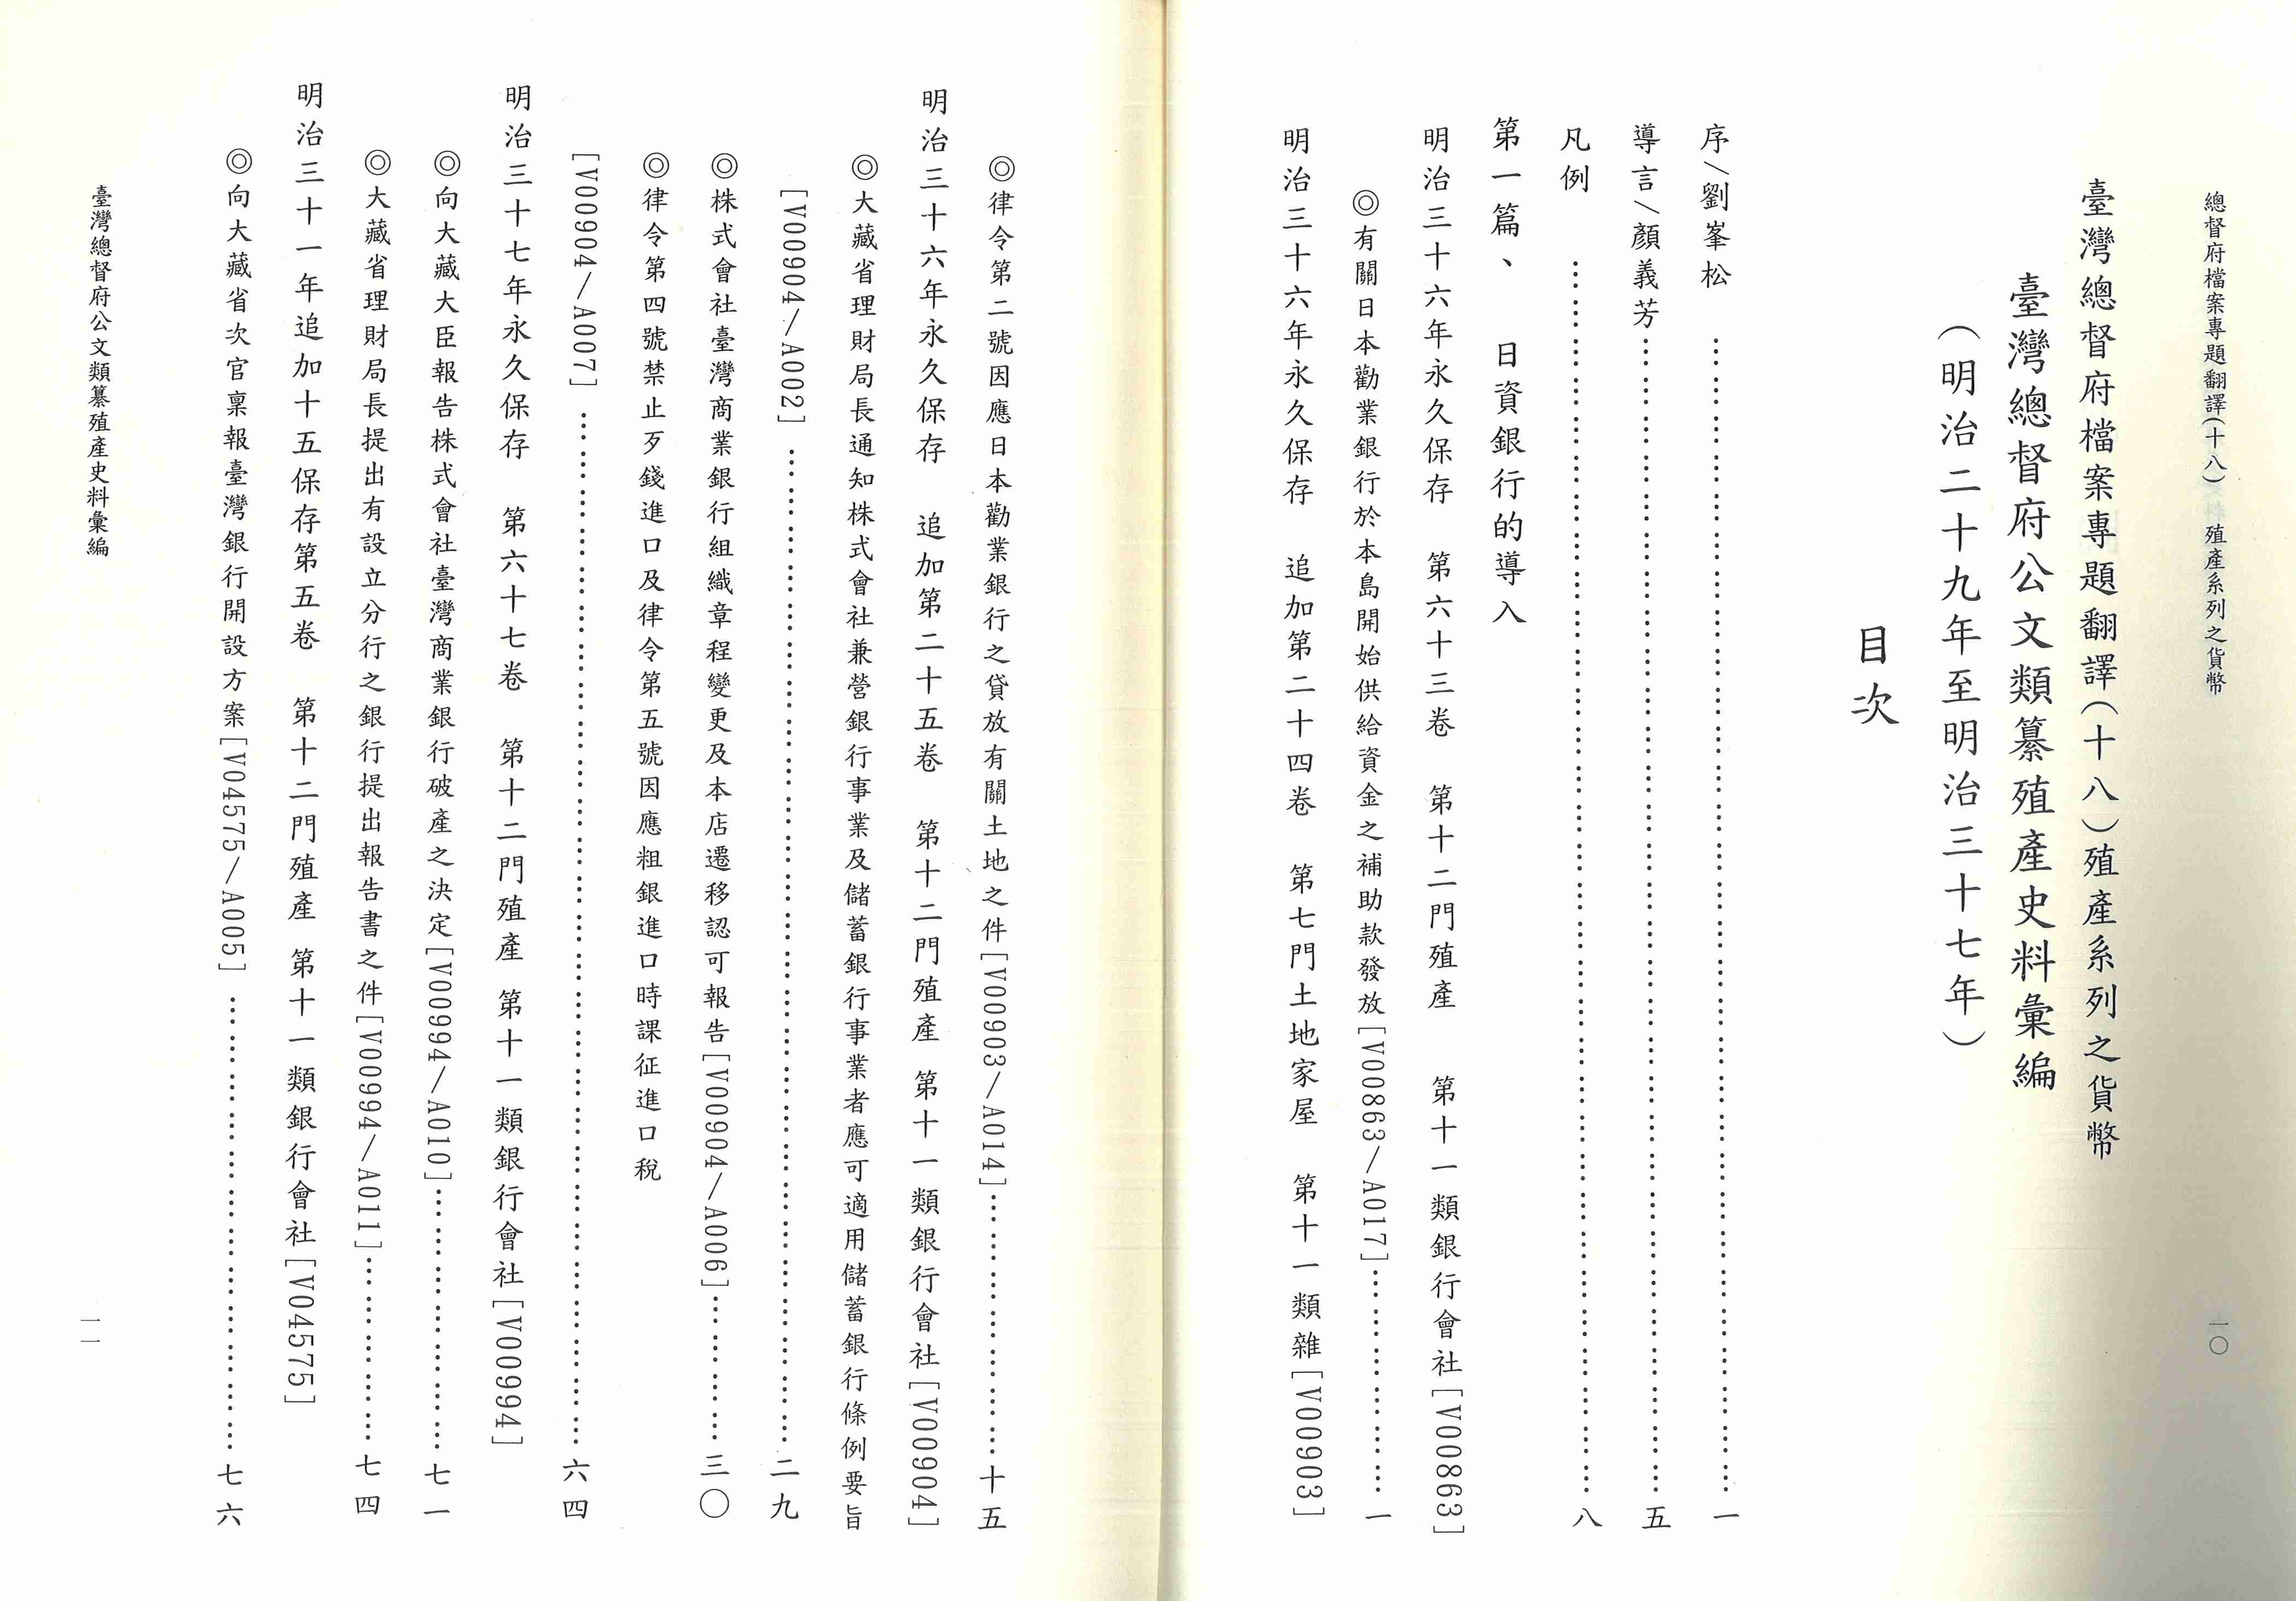 總督府檔案專題翻譯(十八) 殖產系列之貨幣
一〇
臺灣總督府檔案專題翻譯(十八)殖產系列之貨幣
臺灣總督府公文類纂殖產史料彙編
(明治二十九年至明治三十七年)
目次
序/劉峯松……………………一
導言/顏義芳……………………五
凡例……………………八
第一篇、 日資銀行的導入
明治三十六年永久保存 第六十三卷 第十二門殖產 第十一類銀行會社[V00863]
◎有關日本勸業銀行於本島開始供給資金之補助款發放[V00863/A017]……………………一
明治三十六年永久保存 追加第二十四卷 第七門土地家屋 第十一類雜[V00903]
◎律令第二號因應日本勸業銀行之貸放有關土地之件[V00903/A014]……………………十五
明治三十六年永久保存 追加第二十五卷 第十二門殖產 第十一類銀行會社[V00904]
◎大藏省理財局長通知株式會社兼營銀行事業及儲蓄銀行事業者應可適用儲蓄銀行條例要旨
[V00904/A002]……………………二九
◎株式會社臺灣商業銀行組織章程變更及本店遷移認可報告[V00904/A006]……………………三〇
◎律令第四號禁止歹錢進口及律令第五號因應粗銀進口時課征進口稅
[V00904/A007]……………………六四
明治三十七年永久保存 第六十七卷 第十二門殖產 第十一類銀行會社[V00994]
◎向大藏大臣報告株式會社臺灣商業銀行破產之決定[V00994/A010]……………………七一
◎大藏省理財局長提出有設立分行之銀行提出報告書之件[V00994/A011]……………………七四
明治三十一年追加十五保存第五卷 第十二門殖產 第十一類銀行會社[V04575]
◎向大藏省次官稟報臺灣銀行開設方案[V04575/A005]……………………七六
臺灣總督府公文類纂殖產史料彙編
一一